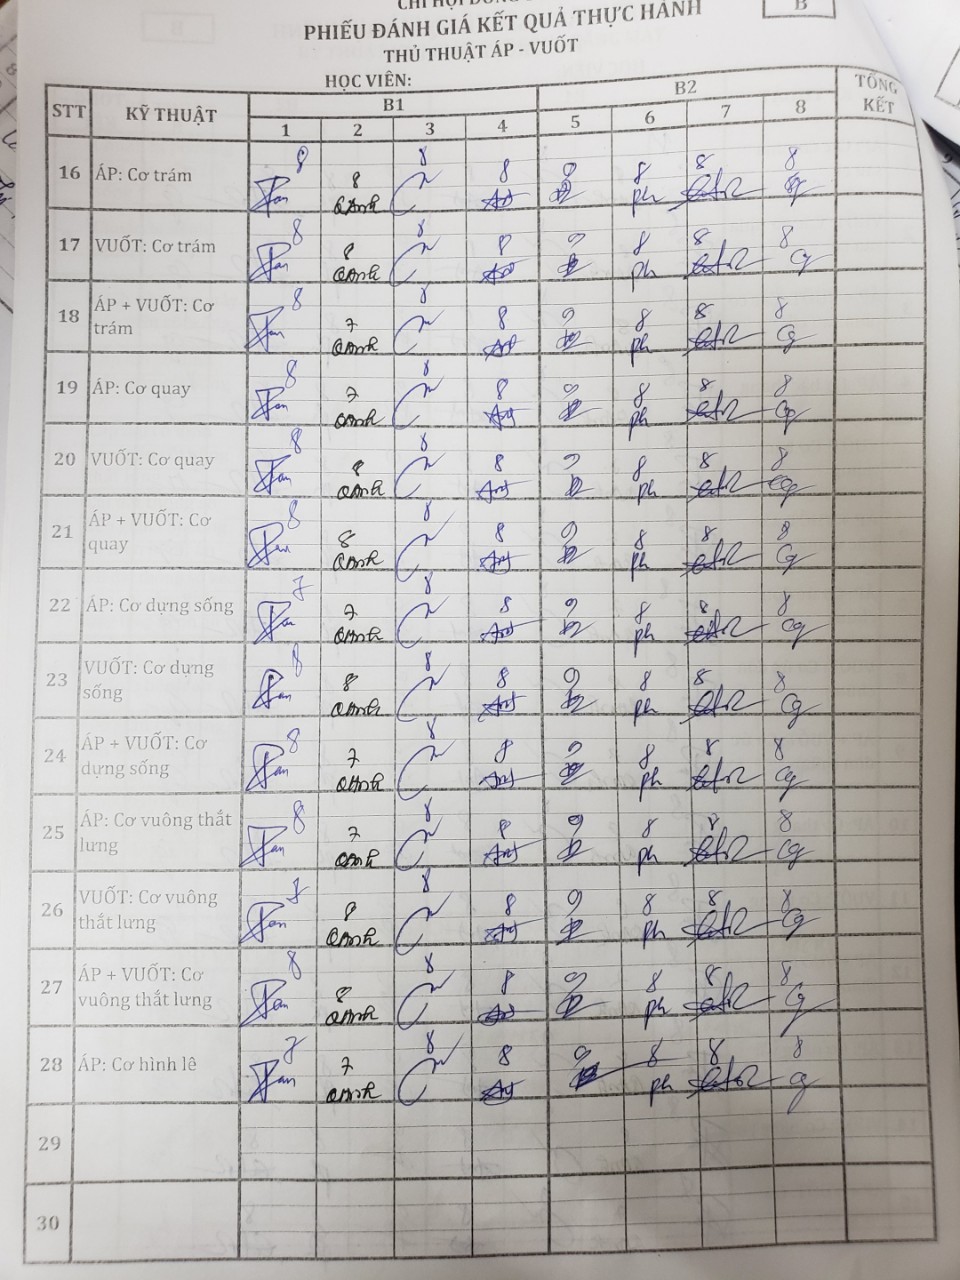 PHIẾU ĐÁNH GIÁ KẾT QUẢ THỰC HÀNH
B
THỦ THUẬT ÁP - VUỐT
HỌC VIÊN:
STT KỸ THUẬT B1 B2 TỔNG KẾT
1 2 3 4 5 6 7 8
16 ÁP: Cơ trám 8 8 8 8 9 8 8 8
QAnh ph
17 VUỐT: Cơ trám 8 8 8 8 9 8 8 8
QAnh ph Cg
18 ÁP + VUỐT: Cơ trám 8 7 8 8 9 8 8 8
QAnh ph Cg
19 ÁP: Cơ quay 8 7 8 8 9 8 8 8
QAnh ph
20 VUỐT: Cơ quay 8 8 8 8 9 8 8 8
QAnh ph
21 ÁP + VUỐT: Cơ quay 8 8 8 8 9 8 8 8
QAnh ph Cg
22 ÁP: Cơ dựng sống 7 7 8 8 9 8 8 8
QAnh ph Cg
23 VUỐT: Cơ dựng sống 8 8 8 8 9 8 8 8
QAnh ph Cg
24 ÁP + VUỐT: Cơ dựng sống 8 7 8 8 9 8 8 8
QAnh ph Cg
25 ÁP: Cơ vuông thắt lưng 8 7 8 8 9 8 8 8
QAnh ph Cg
26 VUỐT: Cơ vuông thắt lưng 8 8 8 9 8 8 8
QAnh ph Cg
27 ÁP + VUỐT: Cơ vuông thắt lưng 8 8 8 8 9 8 8 8
QAnh ph Cg
28 ÁP: Cơ hình lê 7 8 8 9 8 8 8
QAnh ph
29
30